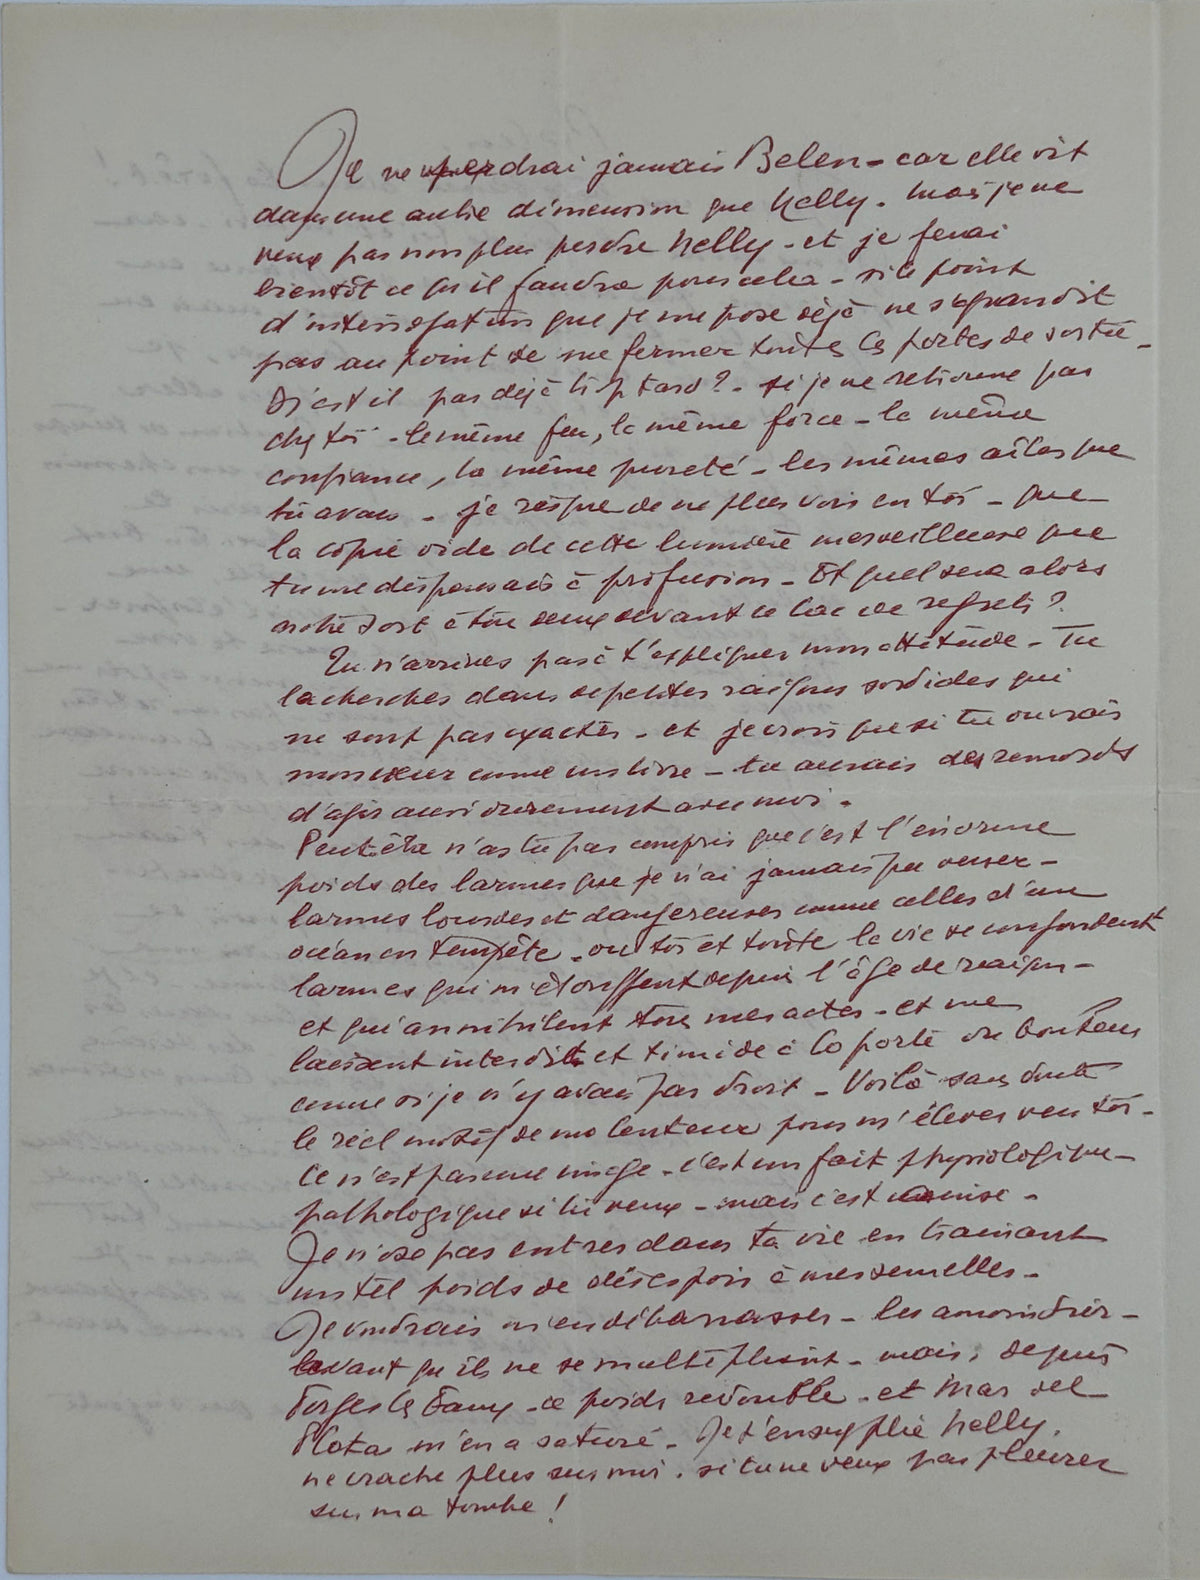 Je ne perdrai jamais Belen - car elle vit
dans une autre dimension que Nelly. Mais je ne
veux pas non plus perdre Nelly - et je ferai
bientôt ce qu'il faudra pour cela - si le point
d'interrogation que je me pose déjà ne s'agrandit
pas au point de me fermer toutes les portes de sortie -
N'est il pas déjà trop tard ? - si je ne retrouve pas
chez toi - le même feu, la même force - la même
confiance, la même pureté - les mêmes aîles que
tu avais - je risque de ne plus voir en toi - que
la copie vide de cette lumière merveilleuse que
tu me dispensais à profusion - Et quel sera alors
notre sort à tous deux devant ce lac de regrets ?
Tu n'arrives pas à t'expliquer mon attitude - Tu
la cherches dans de petites raisons sordides qui
ne sont pas exactes - et je crois que si tu ouvrais
mon cœur comme un livre - tu aurais des remords
d'agir aussi durement avec moi -
Peut être n'as tu pas compris que c'est l'énorme
poids des larmes que je n'ai jamais pu verser -
larmes lourdes et dangereuses comme celles d'un
océan en tempête - où toi et toute la vie se confondent
larmes qui m'étouffent depuis l'âge de raison -
et qui annihilent tous mes actes - et me
laissent interdit et timide à la porte du bonheur
comme si je n'y avais pas droit - Voilà sans doute
le réel motif de ma lenteur pour m'élever vers toi -
Ce n'est pas une image - c'est un fait physiologique -
pathologique si tu veux - mais c'est
Je n'ose pas entrer dans ta vie en trainant
un tel poids de désespoir à mes semelles -
Je voudrais m'en débarrasser - les amoindrir -
avant qu'ils ne se multiplient - mais, depuis
Forges les Eaux - ce poids redouble - et Mar del
Plata m'en a saturé - Je t'en supplie Nelly,
ne crache plus sur moi - si tu ne veux pas pleurer
sur ma tombe !